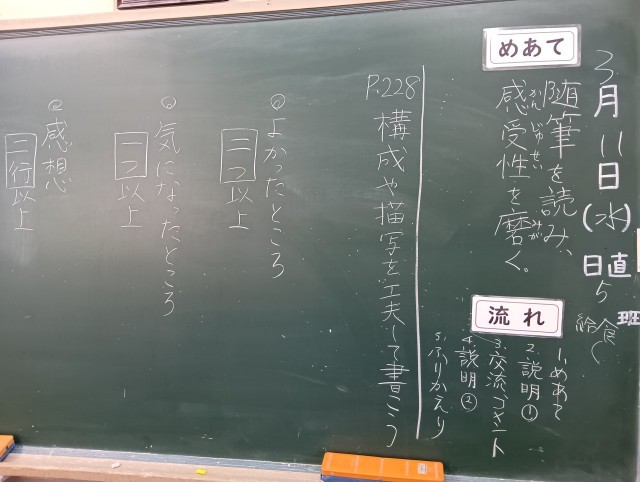 3月11日(水)
日直 5班
給食
めあて
随筆を読み、
感受性を磨く。
かんじゅせい
みが
流れ
1.めあて
2.説明①
3.交流、コメント
4.説明②
5.ふりかえり
P.228 構成や描写を工夫して書こう
よかったところ
二つ以上
気になったところ
一つ以上
感想
二行以上